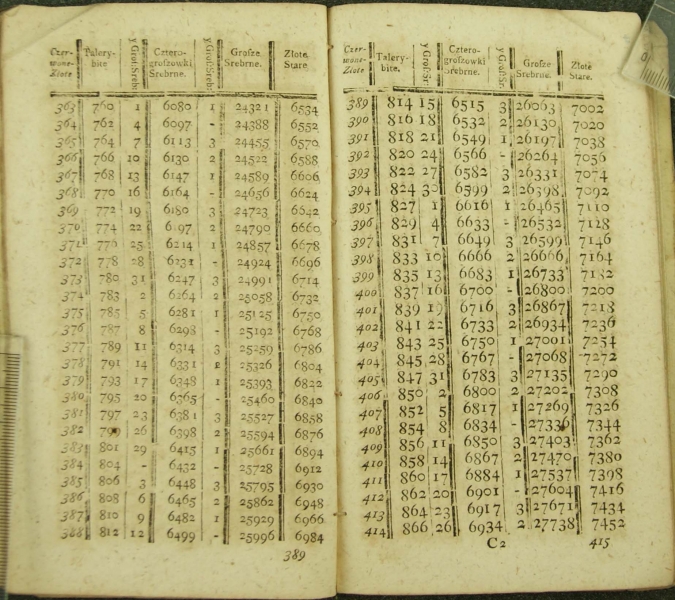 Czer-wone-Zlote Talery-bite y Groſ:Srebr: Cztero-groszowki Srebrne. y Groſ:Srebr: Grosze Srebrne. Złote Stare
363 760 1 6080 1 24321 6534
364 762 4 6097 - 24388 6552
365 764 7 6113 3 24455 6570
366 766 10 6130 2 24522 6588
367 768 13 6147 1 24589 6606
368 770 16 6164 - 24656 6624
369 772 19 6180 3 24723 6642
370 774 22 6197 2 24790 6660
371 776 25 6214 1 24857 6678
372 778 28 6231 - 24924 6696
373 780 31 6247 3 24991 6714
374 783 2 6264 2 25058 6732
375 785 5 6281 1 25125 6750
376 787 8 6298 - 25192 6768
377 789 11 6314 3 25259 6786
378 791 14 6331 2 25326 6804
379 793 17 6348 1 25393 6822
380 795 20 6365 - 25460 6840
381 797 23 6381 3 25527 6858
382 799 26 6398 2 25594 6876
383 801 29 6415 1 25661 6894
384 804 - 6432 - 25728 6912
385 806 3 6448 3 25795 6930
386 808 6 6465 2 25862 6948
387 810 9 6482 1 25929 6966
388 812 12 6499 - 25996 6984
389
Czer-wone-Zlote Talery-bite. y Groſ:Sr: Cztero-groszowki Srebrne. y Groſ:Sr: Grosze Srebrne. Złote Stare.
389 814 15 6515 3 26063 7002
390 816 18 6532 2 26130 7020
391 818 21 6549 1 26197 7038
392 820 24 6566 - 26264 7056
393 822 27 6582 3 26331 7074
394 824 30 6599 2 26398 7092
395 827 1 6616 1 26465 7110
396 829 4 6633 - 26532 7128
397 831 7 6649 3 26599 7146
398 833 10 6666 2 26666 7164
399 835 13 6683 1 26733 7182
400 837 16 6700 - 26800 7200
401 839 19 6716 3 26867 7218
402 841 22 6733 2 26934 7236
403 843 25 6750 1 27001 7254
404 845 28 6767 - 27068 7272
405 847 31 6783 3 27135 7290
406 850 2 6800 2 27202 7308
407 852 5 6817 1 27269 7326
408 854 8 6834 - 27336 7344
409 856 11 6850 3 27403 7362
410 858 14 6867 2 27470 7380
411 860 17 6884 1 27537 7398
412 862 20 6901 - 27604 7416
413 864 23 6917 3 27671 7434
414 866 26 6934 2 27738 7452
C2 415